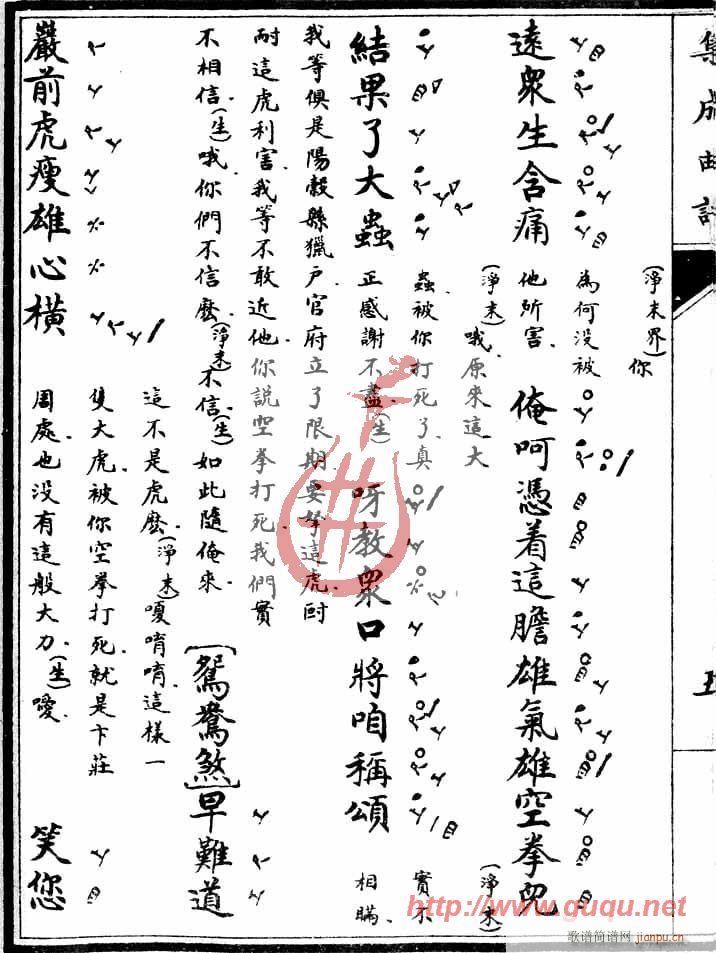 集成曲譜
遠衆生含痛
(淨末界)你
為何没被
他所害
俺呵憑着這膽雄氣雄空拳兒
結果了大蟲
(淨末)哦原來這大
蟲被你打死了真
正感謝不盡(生)
呀教衆口將咱稱頌
(淨末)
實不
相瞞
我等俱是陽穀縣獵户官府立了限期要拏這虎尀
耐這虎利害我等不敢近他你說空拳打死我們實
不相信(生)哦你們不信麽(淨末)不信(生)如此隨俺來
[鴛鴦煞]早難道
巖前虎瘦雄心橫
這不是虎麽(淨末)嗄唷唷這樣一
隻大虎被你空拳打死就是卞莊
周處也没有這般大力(生)噯
笑您
http://www.guqu.net
歌谱简谱网
jianpu.cn